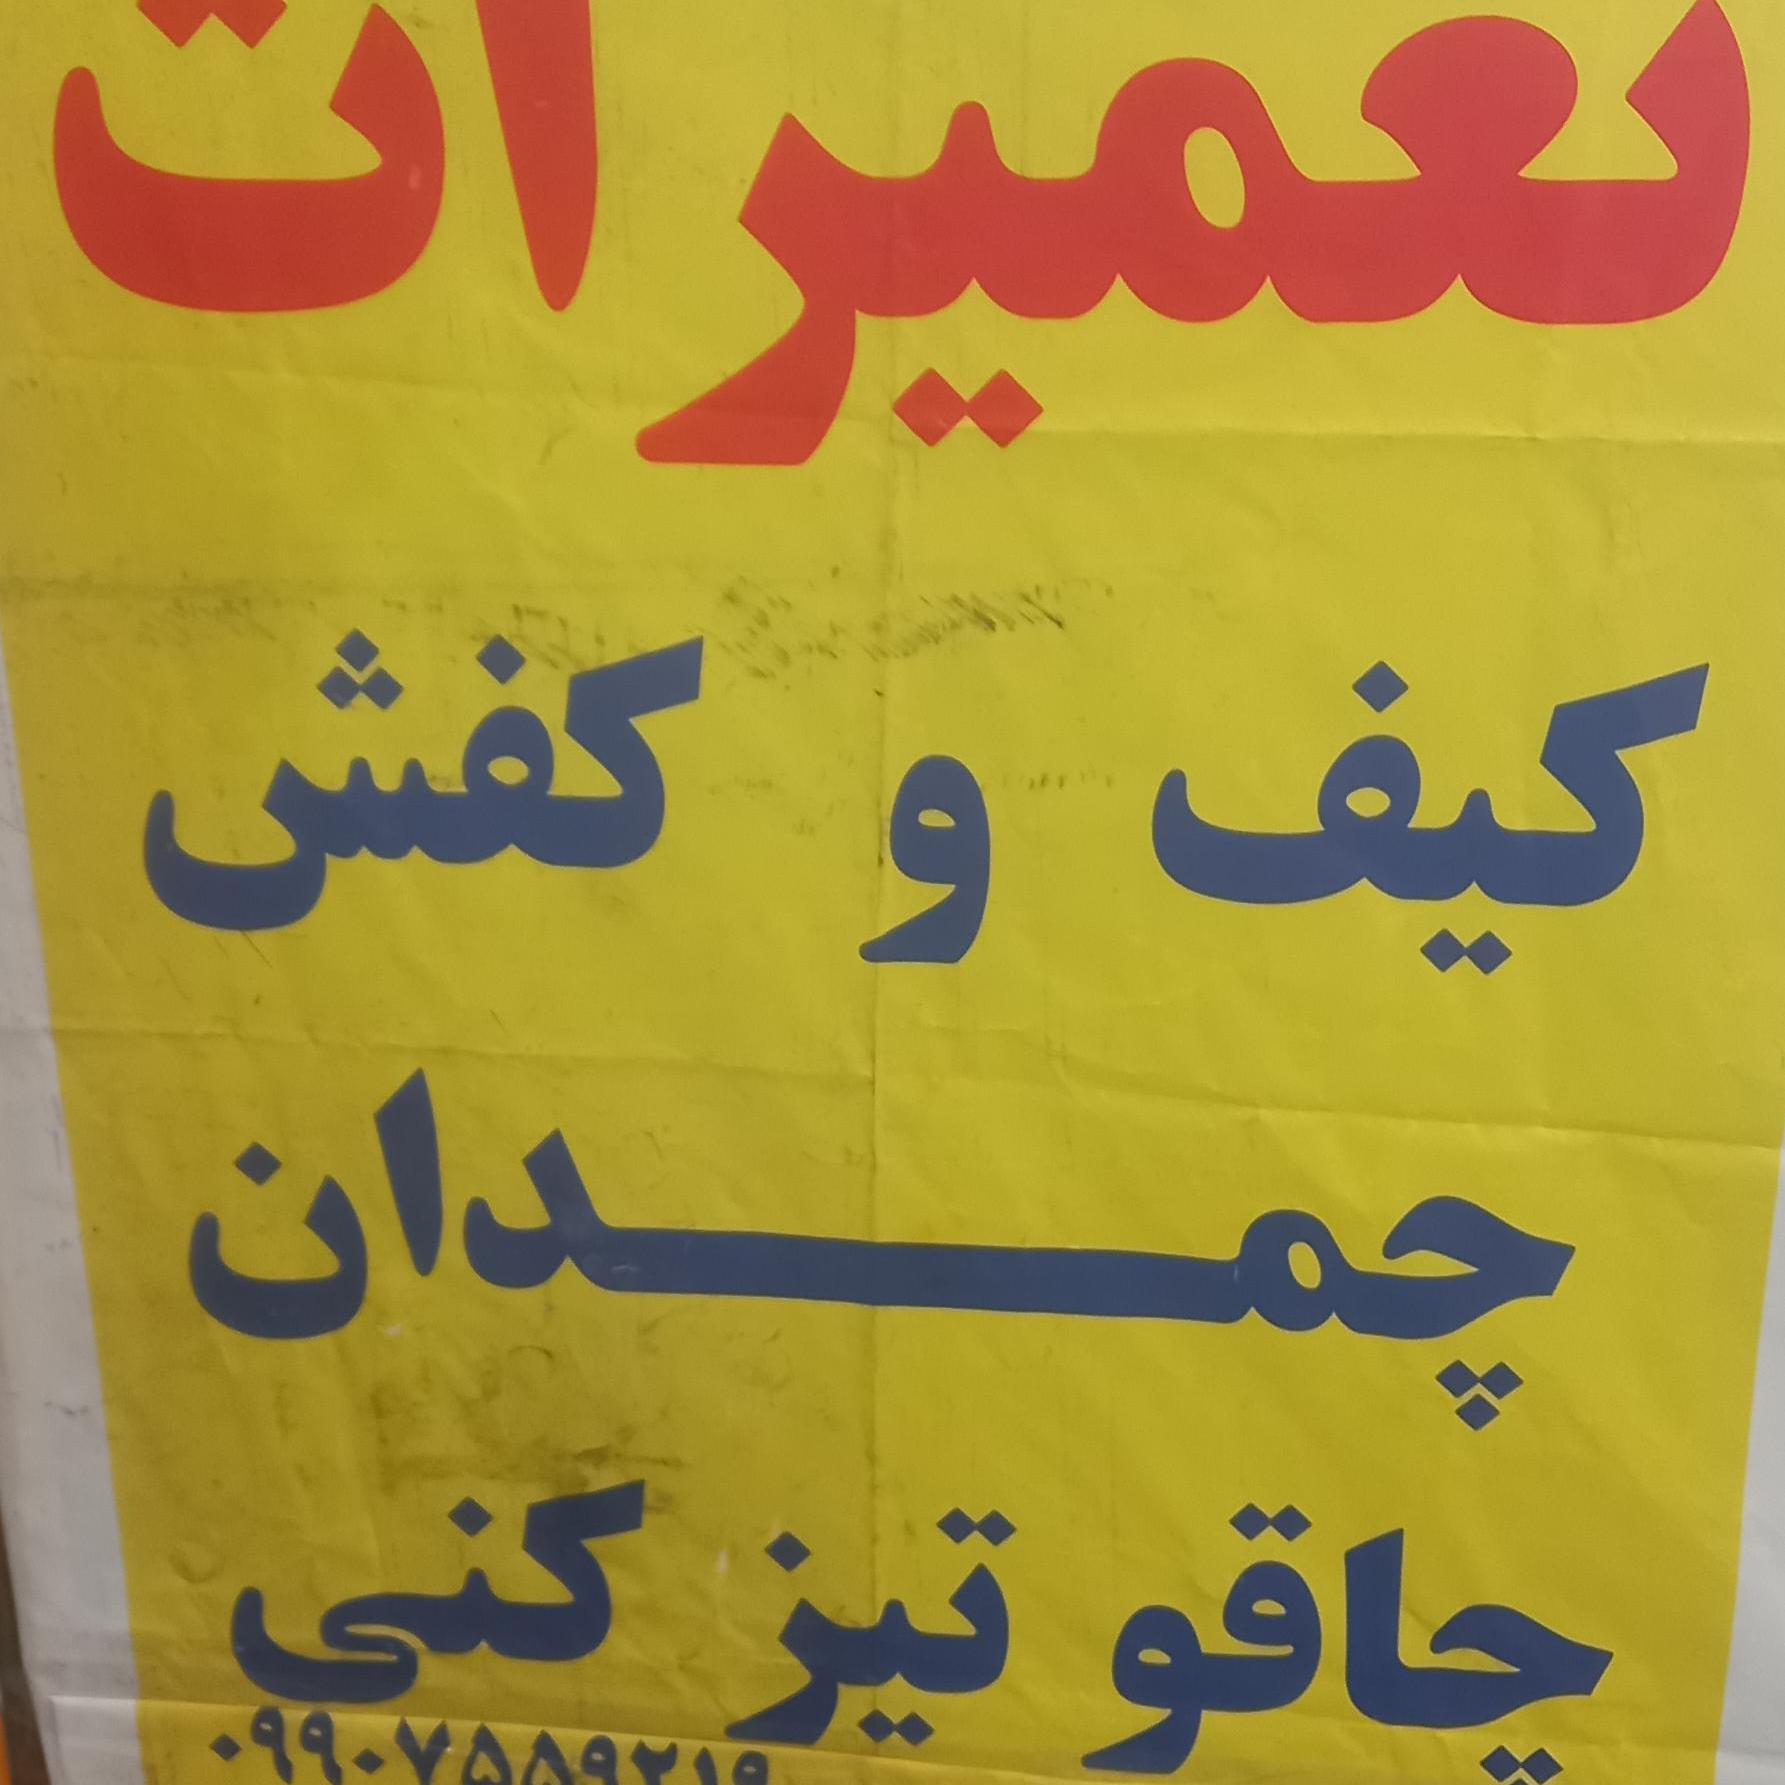 تعمیرات
کیف و کفش
چمدان
چاقو تیز کنی
۰۹۹۰۷۵۵۹۲۱۹